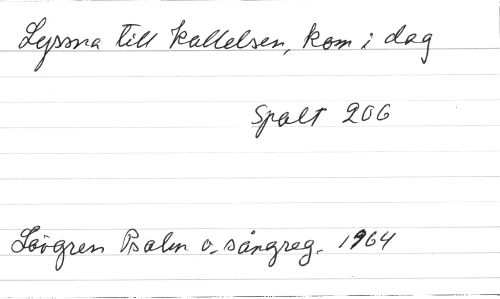 Lyssna till kallelsen, kom i dag
Spalt 206
Lövgren Psalm o. sångreg. 1964